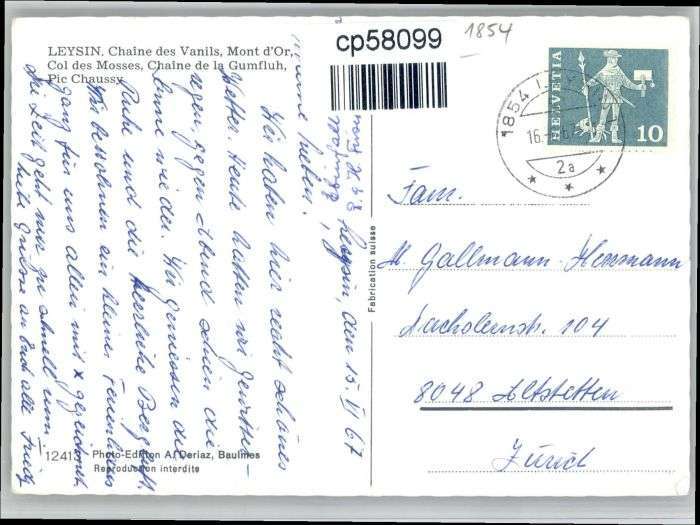 LEYSIN. Chaîne des Vanils, Mont d'Or,
Col des Mosses, Chaîne de la Gumfluh,
Pic Chaussy
cp58099
1854
HELVETIA
10
1854
16.
2a
Leysin, den 15. VI 67
Meine Lieben.
Wir haben hier recht schönes
Wetter. Heute hatten wir Gewitter-
regen, gegen Abend schien die
Sonne wieder. Wir geniessen die
Ruhe und die herrliche Bergluft.
Wir bewohnen ein kleines Ferienhaus
ganz für uns allein mit
Die Zeit geht nur zu schnell um.
Liebe Grüsse an Euch alle
Fabrication suisse
Fam.
H. Gallmann-Herrmann
Lacholernstr. 104
8048 Altstetten
Zürich
1241 Photo-Edition A. Deriaz, Baulmes
Reproduction interdite